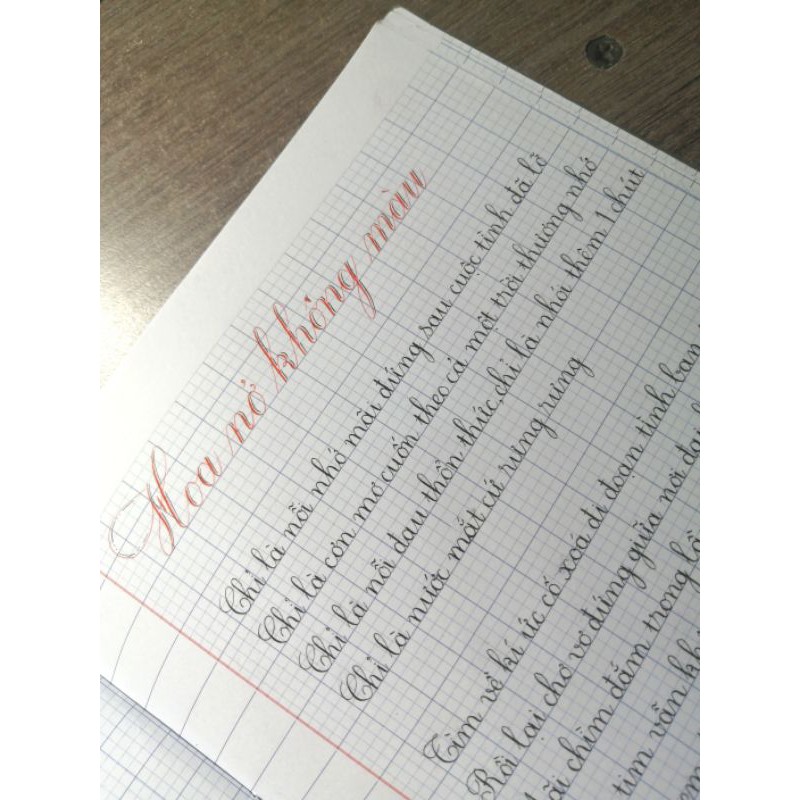 Hoa nở không màu
Chỉ là nỗi nhớ mãi đứng sau cuộc tình đã lỡ
Chỉ là cơn mơ cuốn theo cả một trời thương nhớ
Chỉ là nỗi đau thổn thức, chỉ là nhói thêm 1 chút
Chỉ là nước mắt cứ rưng rưng
Tìm về kí ức cố xoá đi đoạn tình ban
Rồi lại chơ vơ đứng giữa nơi
chìm đắm trong
tim vẫn